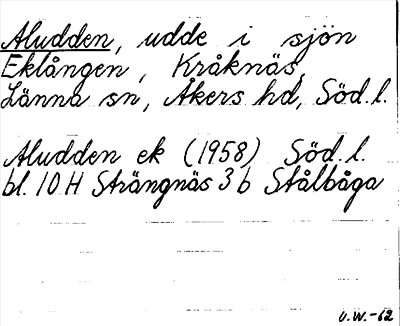 Aludden, udde i sjön
Eklången, Kråknäs,
Länna sn, Åkers hd, Söd. l.
Aludden ek (1958) Söd. l.
bl. 10 H Strängnäs 3 b Stålbåga
U.W.-62